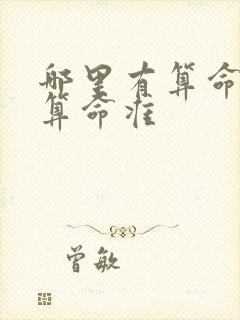 那里有算命
算命准
曾敏